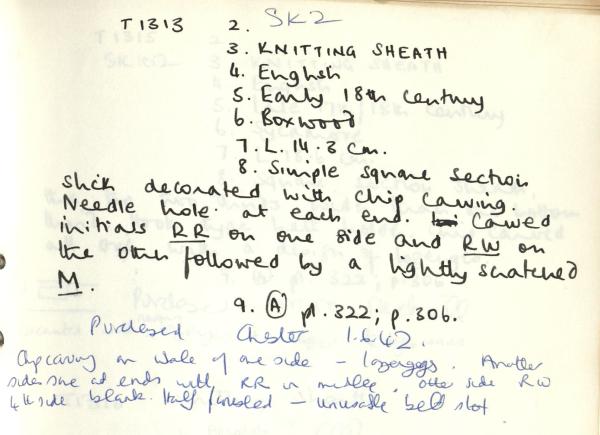 T1313 2. SK2
3. KNITTING SHEATH
4. English
5. Early 18th Century
6. Boxwood
7. L. 14.3 cm.
8. Simple square section
stick decorated with chip carving.
Needle hole at each end. Carved
initials RR on one side and RW on
the other followed by a lightly scratched
M.
9. (A) pl. 322; p. 306.
Purchased Chester 1.6.42.
Chipcarving on whole of one side – lozenges. Another
side at ends with RR in middle, other side RW
4th side blank. Half finished – unusable belt slot